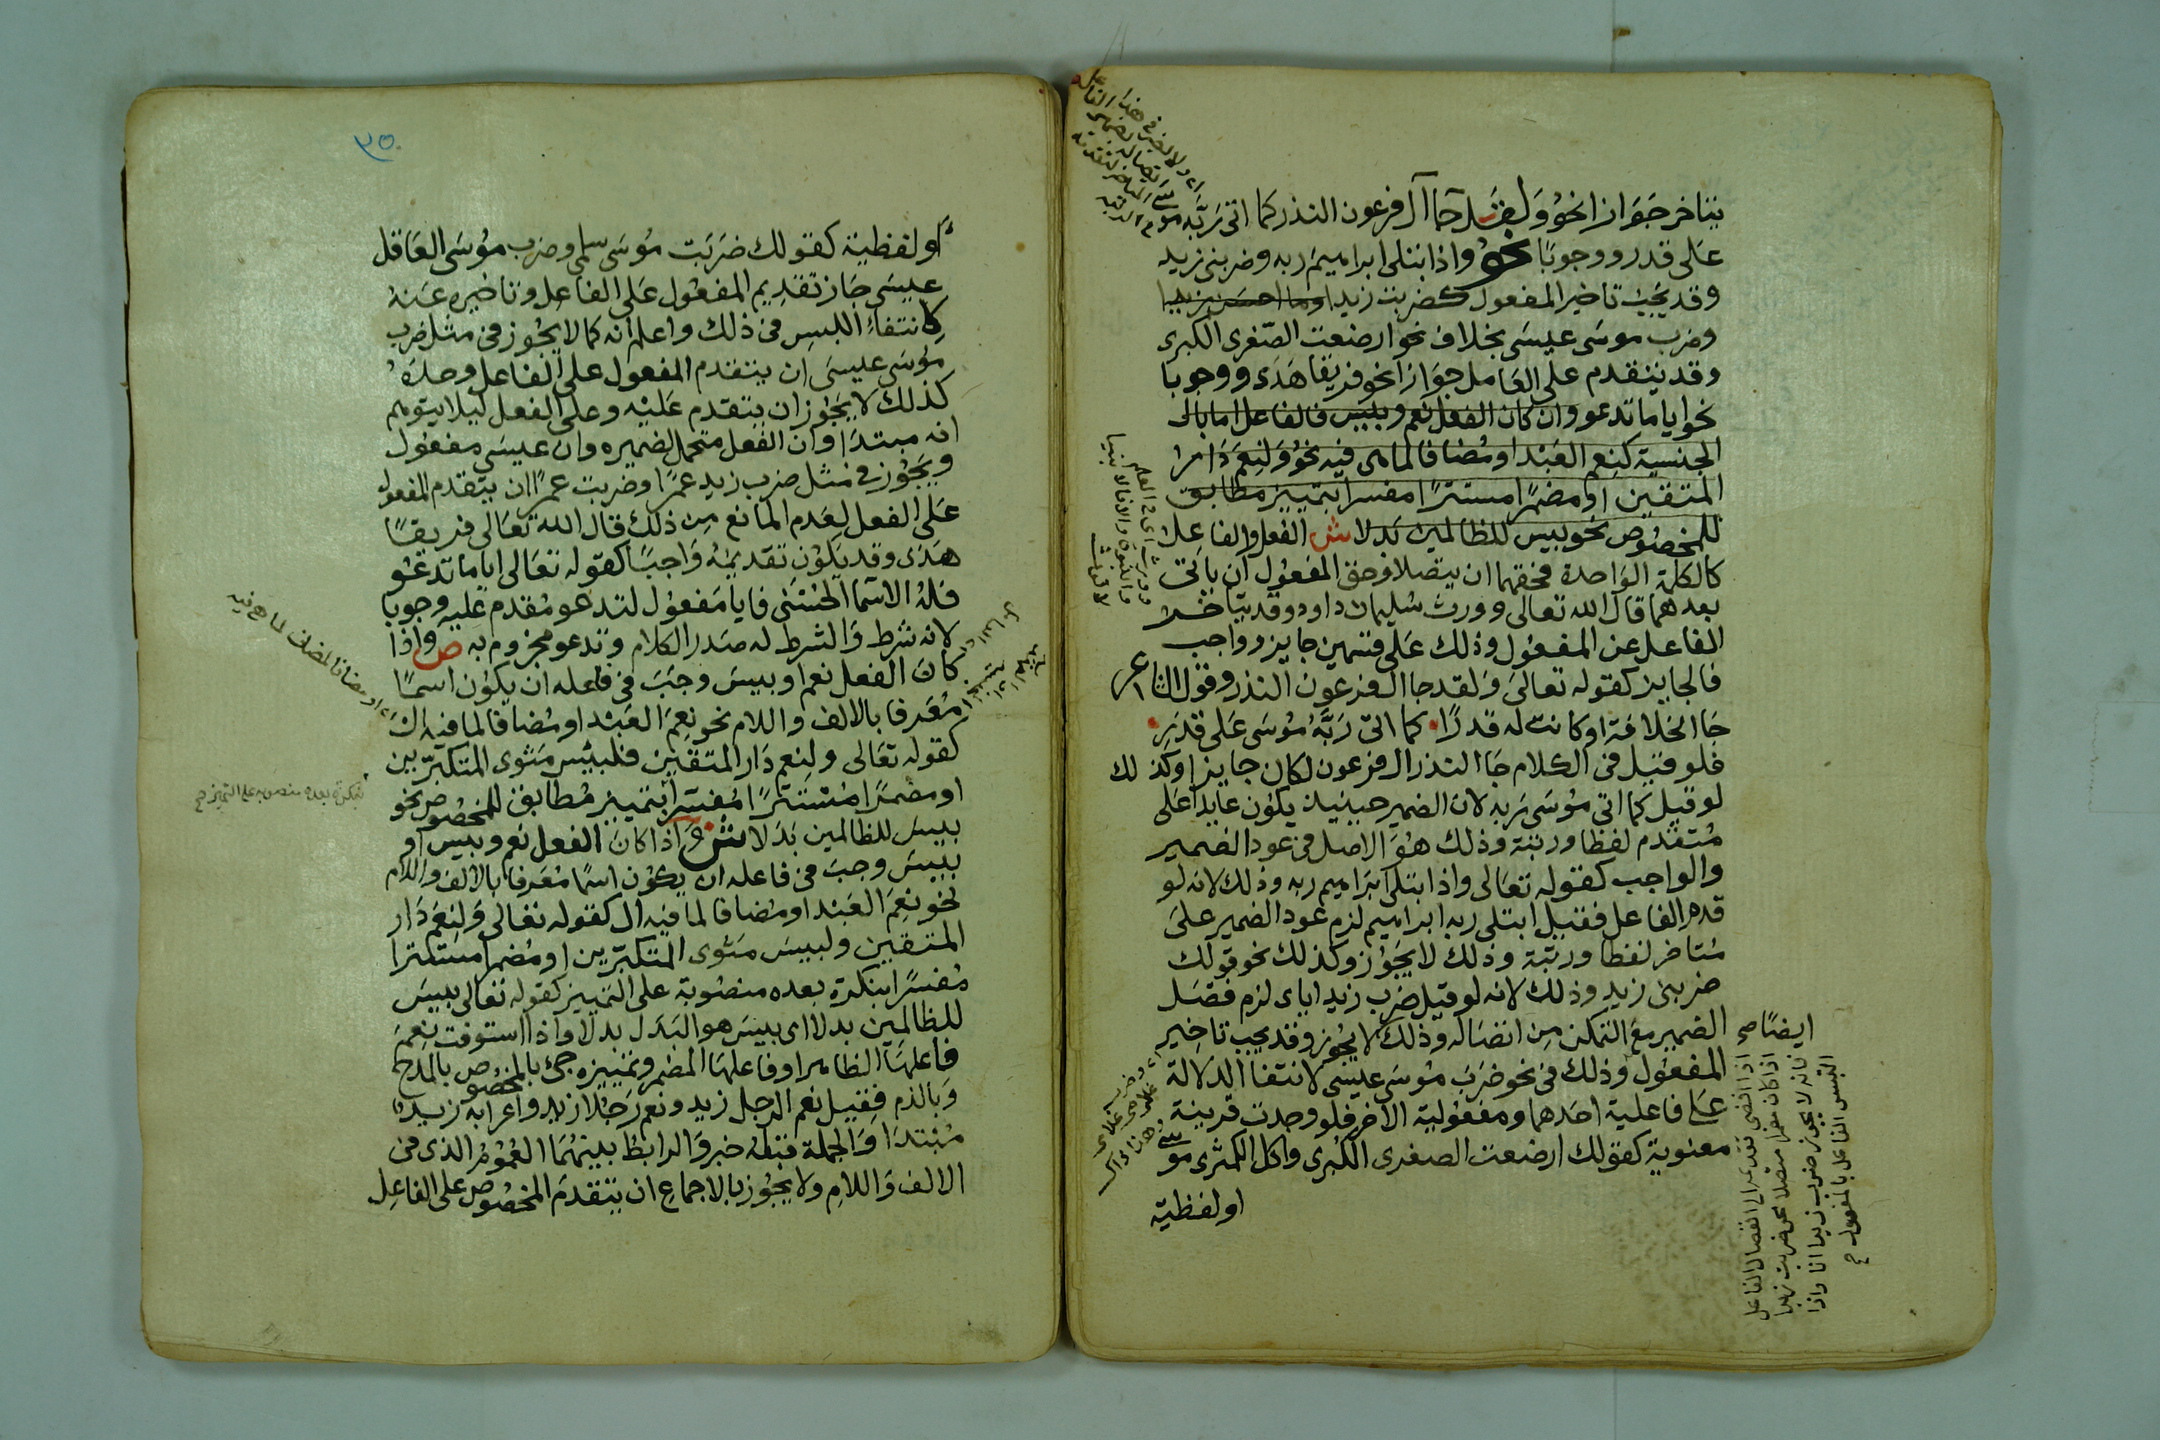 يتاخر جوازا نحو ولقد جا آل فرعون النذر كما اتى ربه موسى
على قدر ووجوبا نحو واذ ابتلى ابراهيم ربه وضربنى زيد
وقد يجب تاخير المفعول كضربت زيدا وما احسن زيدا
وضرب موسى عيسى بخلاف نحو ارضعت الصغرى الكبرى
وقد يتقدم على العامل جوازا نحو فريقا هدى ووجوبا
نحو اياما تدعو وان كان الفعل نعم وبيس فالفاعل اما بال
الجنسية كنعم العبد او مضافا لما هى فيه نحو ولنعم دار
المتقين او مضمرا مستترا مفسرا بتمييز مطابق
للمخصوص نحو بيس للظالمين بدلا ش الفعل والفاعل
كالكلمة الواحدة فحقهما ان يتصلا وحق المفعول ان ياتى
بعدهما قال الله تعالى وورث سليمان داود وقد يتاخر
الفاعل عن المفعول وذلك على قسمين جايز وواجب
فالجايز كقوله تعالى ولقد جا ال فرعون النذر وقول الشاعر
جا الخلافة او كانت له قدرا كما اتى ربه موسى على قدر
فلو قيل فى الكلام جا النذر ال فرعون لكان جايزا وكذلك
لو قيل كما اتى موسى ربه لان الضمير حينيذ يكون عايدا على
متقدم لفظا ورتبة وذلك هو الاصل فى عود الضمير
والواجب كقوله تعالى واذ ابتلى ابراهيم ربه وذلك لانه لو
قدم الفاعل فقيل ابتلى ربه ابراهيم لزم عود الضمير على
متاخر لفظا ورتبة وذلك لا يجوز وكذلك نحو قولك
ضربنى زيد وذلك لانه لو قيل ضرب زيد اياى لزم فصل
الضمير مع التمكن من اتصاله وذلك لا يجوز وقد يجب تاخير ايضا صح
المفعول وذلك فى نحو ضرب موسى عيسى لانتفا الدلالة
على فاعلية احدهما ومفعولية الاخر فلو وجدت قرينة
معنوية كقولك ارضعت الصغرى الكبرى واكل الكمثرى موسى
او لفظية
اذا اقتضى تقديمه الى انفصال الفاعل
اذا كان ضميرا متصلا نحو ضربت زيدا
فانه لا يجوز ضرب زيدا انا واذا
التبس الفاعل بالمفعول
٣٥
او لفظية كقولك ضربت موسى سلمى وضرب موسى العاقل
عيسى جاز تقديم المفعول على الفاعل وتاخيره عنه
لانتفاء اللبس فى ذلك واعلم انه كما لا يجوز فى مثل ضرب
موسى عيسى ان يتقدم المفعول على الفاعل وحده
كذلك لا يجوز ان يتقدم عليه وعلى الفعل ليلا يتوهم
انه مبتدا وان الفعل متحمل لضميره وان عيسى مفعول
ويجوز فى مثل ضرب زيد عمرا وضربت عمرا ان يتقدم المفعول
على الفعل لعدم المانع من ذلك قال الله تعالى فريقا
هدى وقد يكون تقديمه واجبا كقوله تعالى اياما تدعو
فله الاسما الحسنى فايا مفعول لتدعو مقدم عليه وجوبا
لانه شرط والشرط له صدر الكلام وتدعو مجزوم به ص واذا
كان الفعل نعم او بيس وجب فى فاعله ان يكون اسما
معرفا بالالف واللام نحو نعم العبد او مضافا لما فيه ال
كقوله تعالى ولنعم دار المتقين فلبيس مثوى المتكبرين
او مضمرا مستترا مفسرا بتمييز مطابق للمخصوص نحو
بيس للظالمين بدلا ش واذا كان الفعل نعم وبيس او
بيس وجب فى فاعله ان يكون اسما معرفا بالالف واللام
نحو نعم العبد او مضافا لما فيه ال كقوله تعالى ولنعم دار
المتقين ولبيس مثوى المتكبرين او مضمرا مستترا
مفسرا بنكرة بعده منصوبة على التمييز كقوله تعالى بيس
للظالمين بدلا اى بيس هو البدل بدلا واذا استوفت نعم
فاعلها الظاهر او فاعلها المضمر وتمييزه جئ بالمخصوص بالمدح
وبالذم فقيل نعم الرجل زيد ونعم رجلا زيد واعرابه زيد
مبتدا والجملة قبله خبر والرابط بينهما العموم الذى فى
الالف واللام ولا يجوز بالاجماع ان يتقدم المخصوص على الفاعل
او مضافا لمضاف لما هى فيه
بنكرة بعده منصوبة على التمييز